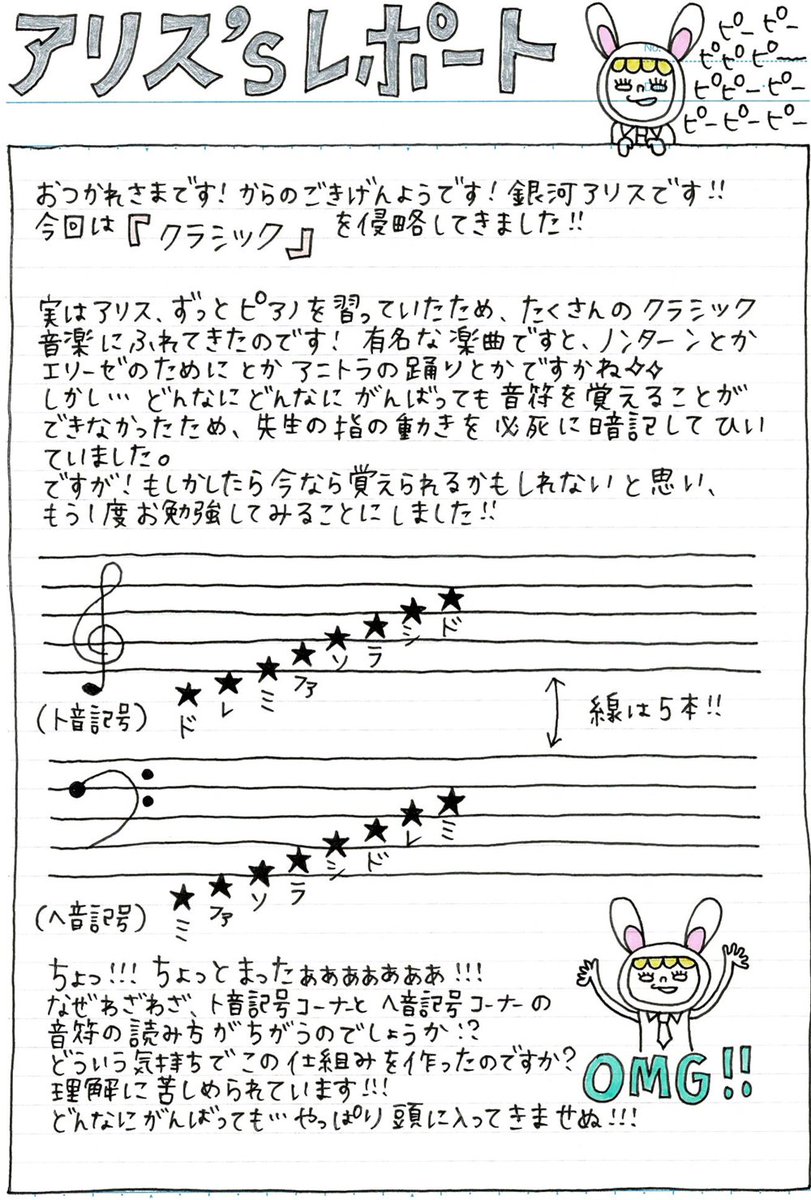 アリス'sレポート
ピー ピー
ピピピー
ピピーピー
ピーピーピー
おつかれさまです!からのごきげんようです!銀河アリスです!!
今回は『クラシック』を侵略してきました!!
実はアリス、ずっとピアノを習っていたため、たくさんのクラシック
音楽にふれてきたのです!有名な楽曲ですと、ノンターンとか
エリーゼのためにとかアニトラの踊りとかですかね✧✧
しかし…どんなにどんなにがんばっても音符を覚えることが
できなかったため、先生の指の動きを必死に暗記してひい
ていました。
ですが!もしかしたら今なら覚えられるかもしれないと思い、
もう1度お勉強してみることにしました!!
ド レ ミ ファ ソ ラ シ ド
(ト音記号)
線は5本!!
ミ ファ ソ ラ シ ド レ ミ
(ヘ音記号)
ちょっ!!!ちょっとまったぁぁぁぁぁぁぁ!!!
なぜわざわざ、ト音記号コーナーとヘ音記号コーナーの
音符の読み方がちがうのでしょうか!?
どういう気持ちでこの仕組みを作ったのですか?
理解に苦しめられています!!!
どんなにがんばっても…やっぱり頭に入ってきませぬ!!!
OMG!!